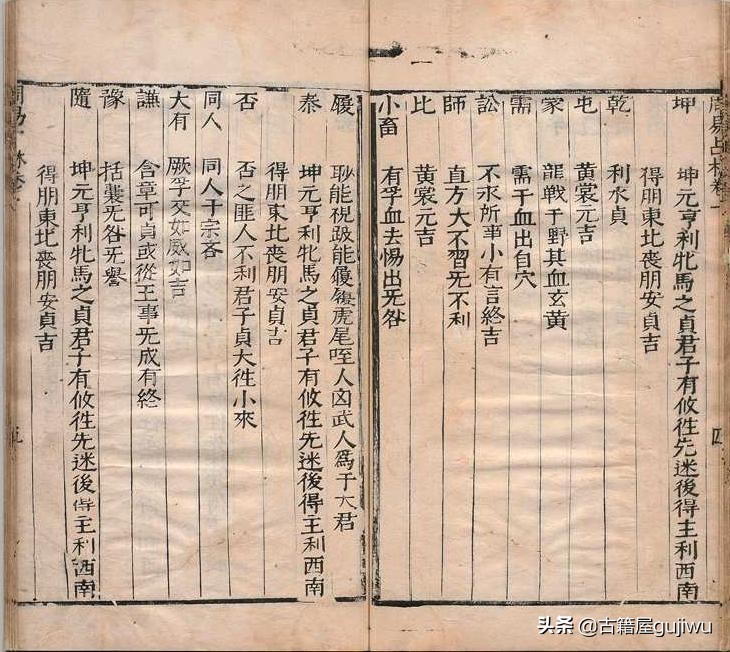 坤 坤元亨利牝馬之貞君子有攸徃先迷後得主利西南
得朋東北喪朋安貞吉
乾 利永貞
屯 黄裳元吉
蒙 龍戰于野其血玄黄
需 需于血出自穴
訟 不永所事小有言終吉
師 直方大不習旡不利
比 黄裳元吉
小畜 有孚血去惕出旡咎
履 眇能視跛能履履虎尾咥人凶武人爲于大君
泰 坤元亨利牝馬之貞君子有攸徃先迷後得主利西南
得朋東北喪朋安貞吉
否 否之匪人不利君子貞大徃小來
同人 同人于宗吝
大有 厥孚交如威如吉
謙 含章可貞或從王事旡成有終
豫 括囊旡咎旡譽
隨 坤元亨利牝馬之貞君子有攸徃先迷後得主利西南
得朋東北喪朋安貞吉
头条 @古籍屋gujiwu